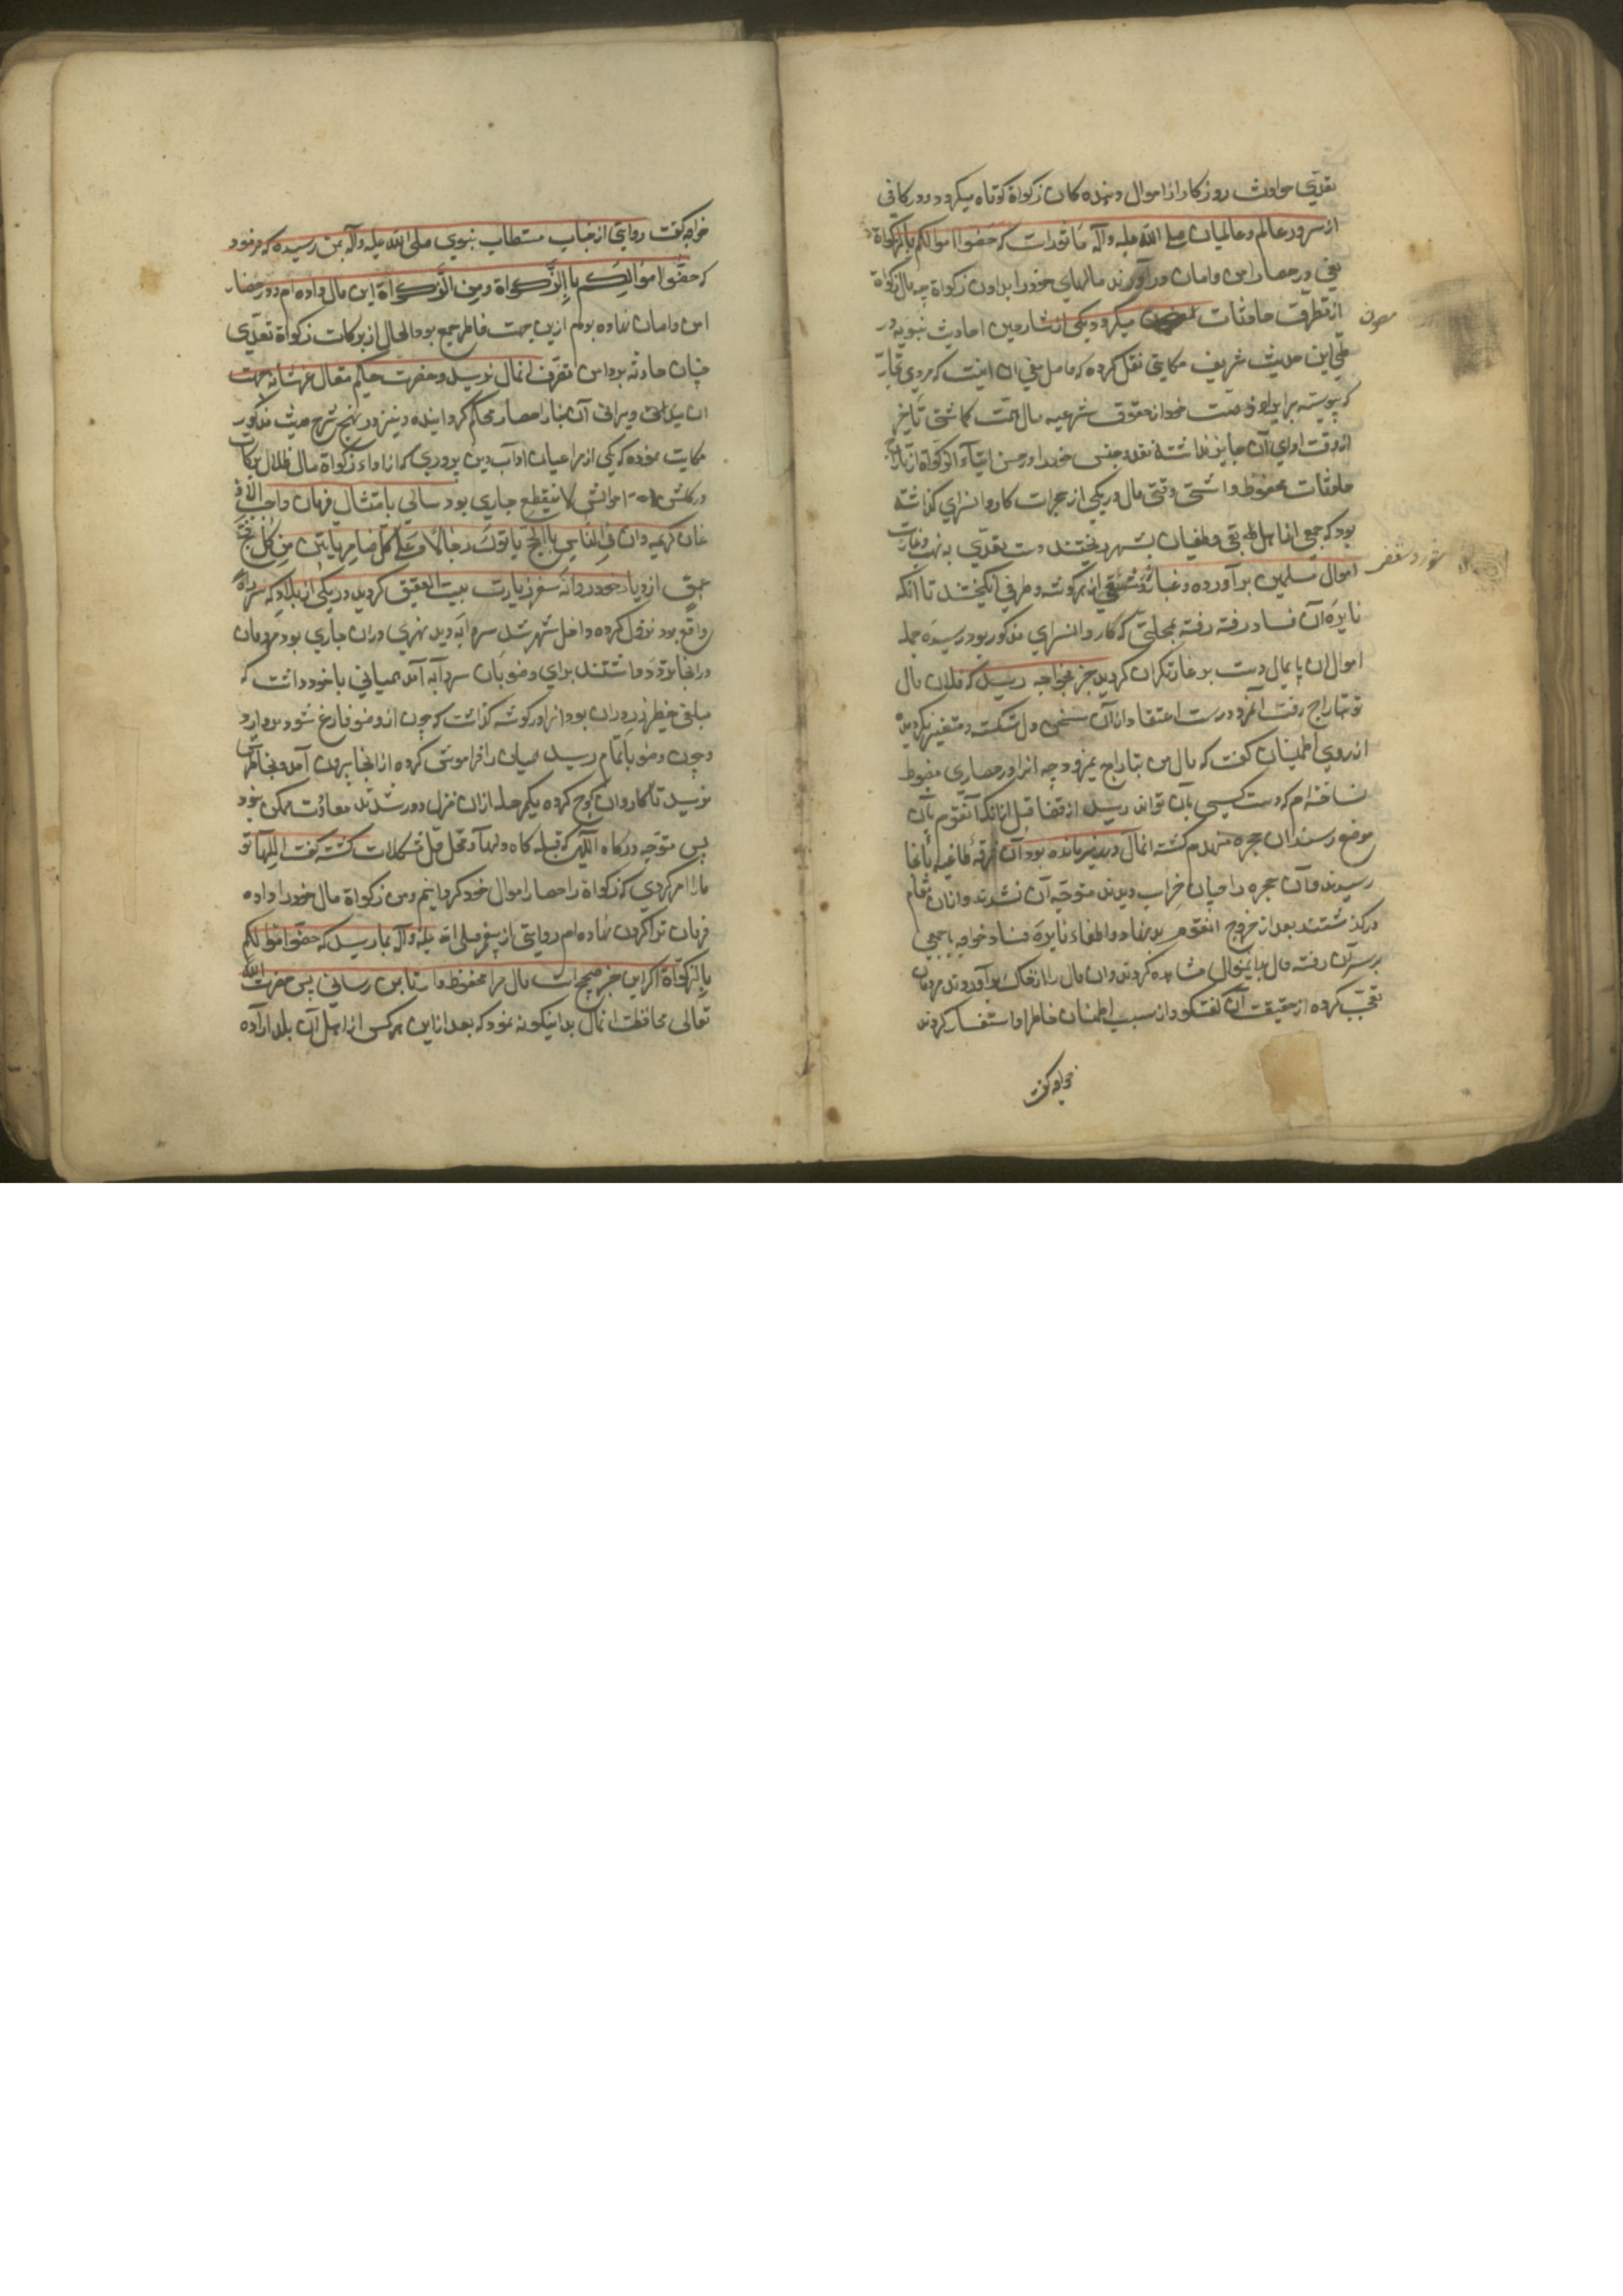 تعدی حوادث روزکار از اموال دهنده کان زکواة کوتاه میکردد و در کافی
از سرور عالم و عالمیان صلی الله علیه وآله ماثورات که حصنوا اموالکم بالزکواة
یعنی در حصار امن و امان در آورند مالهای خود را بدادن زکواة چه مال زکواة
از تطرق حادثات میکردد یکی از شارحین احادیث نبویه در
مصون
طی این حدیث شریف حکایتی نقل کرده که حاصل معنی ان اینست که مردی تجارت
که پیوسته برای خود از حقوق شرعیه مال همت کماشتی تاخیر
از وقت ادای آن جایز نداشته نقد و جنس خود را در حصن ایتاء الزکواة از تاراج
حادثات محفوظ داشتی وقتی مال در یکی از حجرات کاروانسرای کذاشته
بود که جمعی از اهل بغی و طغیان بشهر ریختند دست تعدی به نهب و غارت
اموال مسلمین برآورده و غبار از هر کوشه و طرفی انکیختند تا انکه
نایره آن فساد رفته رفته بمحلتی که کاروانسرای مذکور بود رسیده جمله
اموال ان پایمال دست برد غارتکران کردید خبر بخواجه رسید که فلان مال
تو بتاراج رفت آنمرد درست اعتقاد از آن سخن دل شکسته و متغیر نکردیده
از روی اطمینان کفت که مال من بتاراج نمیرود چه انرا در حصاری مضبوط
ساخته ام که دست کسی بان نتواند رسید از قضا قبل از انکه آنقوم بآن
موضع رسند ان حجره منهدم کشته انمال در زیر مانده بود آن فرقه طاغیه بآنجا
رسیدند و آن حجره را چنان خراب دیدند متوجه آن نشدند و از ان مقام
درکذشتند بعد از خروج انقوم بد نهاد و اطفاء نایره فساد خواجه با جمعی
بر سر آن رفته مال بدین منوال مشاهده کردند و ان مال را از خاک برآوردند مردمان
تعجب کرده از حقیقت آن کفتکو و از سبب اطمنان خاطر او استفسار کردند
خواجه کفت
خواجه کفت روایتی از جناب مستطاب نبوی صلی الله علیه وآله بمن رسیده که فرمود
که حصنوا اموالکم بالزکواة و من الزکواة این مال داده ام و در حصار
امن و امان نهاده بودم ازین جهت خاطر جمع بود الحال از برکات زکواة تعدی
چنان حادثه بدامن تصرف انمال نرسید و حضرت حکیم متعال عز شانه جهت
ان ویرانی آن بنا را حصار محکم کردانیده و نیز در نهج شرح حدیث مذکور
حکایت نموده که یکی از مراعیان اداب دین پروری که از اداء زکواة مال
لا ینقطع جاری بود سالی بامتثال فرمان واجب الاذعان
کریمه و اذن فی الناس بالحج یاتوک رجالا و علی کل ضامر یاتین من کل فج
عمیق از دیار خود روانه سفر زیارت بیت العتیق کردید در یکی از بلاد که سر راه
واقع بود نزول کرده داخل شهر شد سردابه دید نهری در ان جاری بود مردمان
در انجا تردد داشتند برای وضو بآن سردابه آمد همیانی با خود داشت که
مبلغی خطیر زر در ان بود انرا در کوشه کذاشت که چون از وضو فارغ شود بردارد
و چون وضو باتمام رسید همیان را فراموش کرده از انجا بیرون آمد و بخاطرش
نرسید تا کاروان کوچ کرده یکمرحله از ان منزل دور شدند معاودت ممکن نبود
پس متوجه درکاه الهی که قبله کاه دلها و محل حل مشکلات کشته کفت الهی تو
ما را امر کردی که زکواة را حصار اموال خود کردانیم و من زکواة مال خود را داده
فرمان ترا کردن نهاده ام روایتی از پیغمبر صلی الله علیه وآله بما رسید که حصنوا اموالکم
بالزکواة اکر این خبر صحیح است مال مرا محفوظ دار تا بمن رسانی پس حضرت الله
تعالی محافظت انمال بداینکونه نمود که بعد از این هر کس از اهل آن بلد اراده